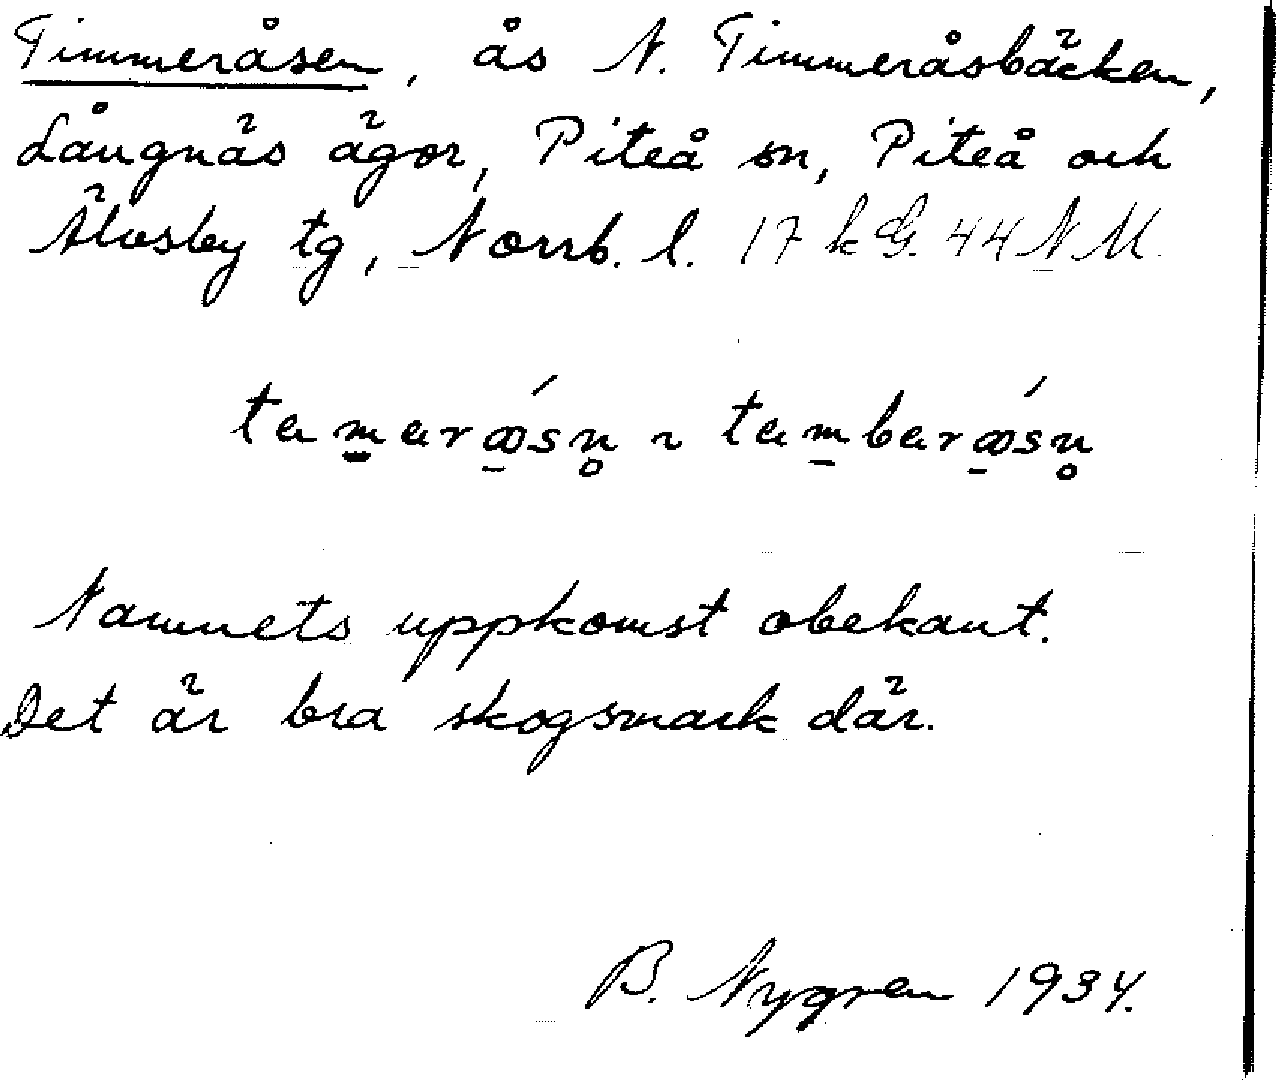 Timmeråsen, ås N. Timmeråsbäcken,
Långnäs ägor, Piteå sn, Piteå och
Älvsby tg, Norrb. l. 17 k G. 44 N M.
tamaråsn̥ ~ tambaråsn̥
Namnets uppkomst obekant.
Det är bra skogsmark där.
B. Nygren 1934.